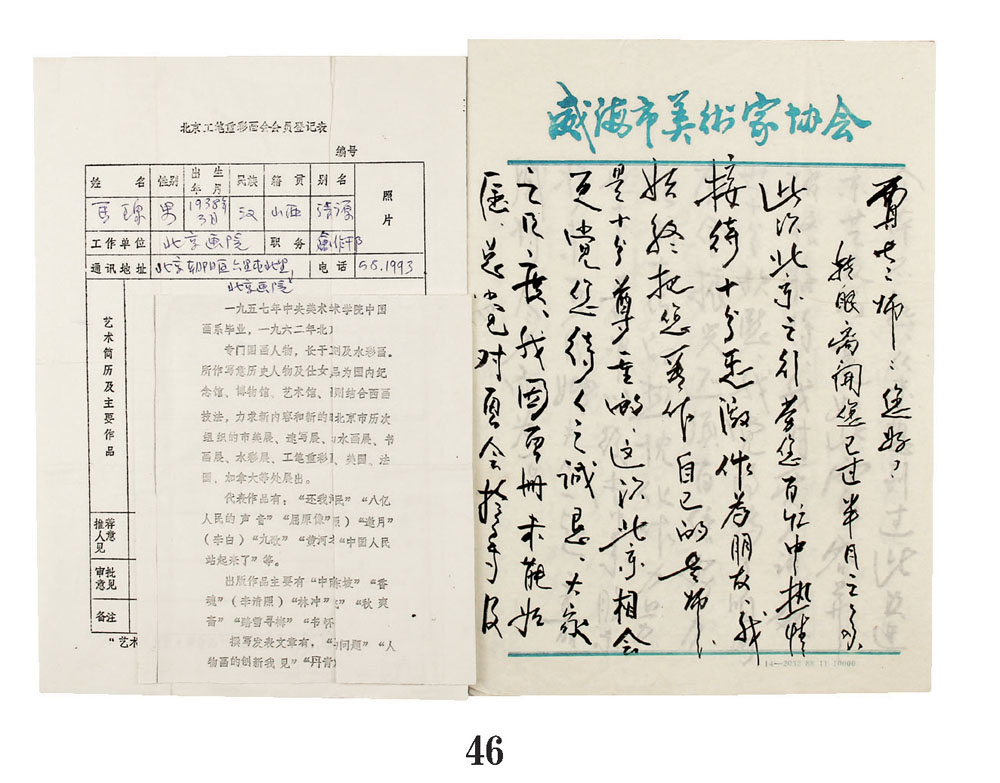 北京工笔重彩画会会员登记表
编号
姓 名 性别 出生年月 民族 籍贯 别名 照片
男 1938年3月 汉 山西 清源
工作单位 北京画院 职务 创作干部
通讯地址 北京朝阳区六里屯北里, 电话 58.1993
北京画院
艺术简历及主要作品
一九五七年中央美术学院中国
画系毕业，一九六二年北
专门国画人物，长于
及水彩画。
所作写意历史人物及仕女
品为国内纪
念馆、博物馆、艺术馆、
则结合西画
技法，力求新内容和新的
北京市历次
组织的市美展、速写展、
水画展、书
画展、水彩展、工笔重彩
、美国、法
国、加拿大等处展出。
代表作品有：“还我河
民”“八亿
人民的声音”“屈原像”
）“邀月”
（李白）“九歌”“黄河
“中国人民
站起来了”等。
出版作品主要有“中
坡”“香
魂”（李清照）“林冲”
“秋爽
斋”“踏雪寻梅”“书怀
撰写发表文章有，“
问题”“人
物画的创新我见”“丹青
推荐人意见
审批意见
备注
“艺术
威海市美术家协会
老师：您好！
转眼离开您已过半月之多
此次北京之行蒙您百忙中热情
接待十分感激、作为朋友、我
始终把您看作自己的老师、
是十分尊重的、这次北京相会
更觉您待人之诚恳、大家
之风度、我因画册未能如
愿、总觉对画会接待及
14—2032 88 11 10000
46